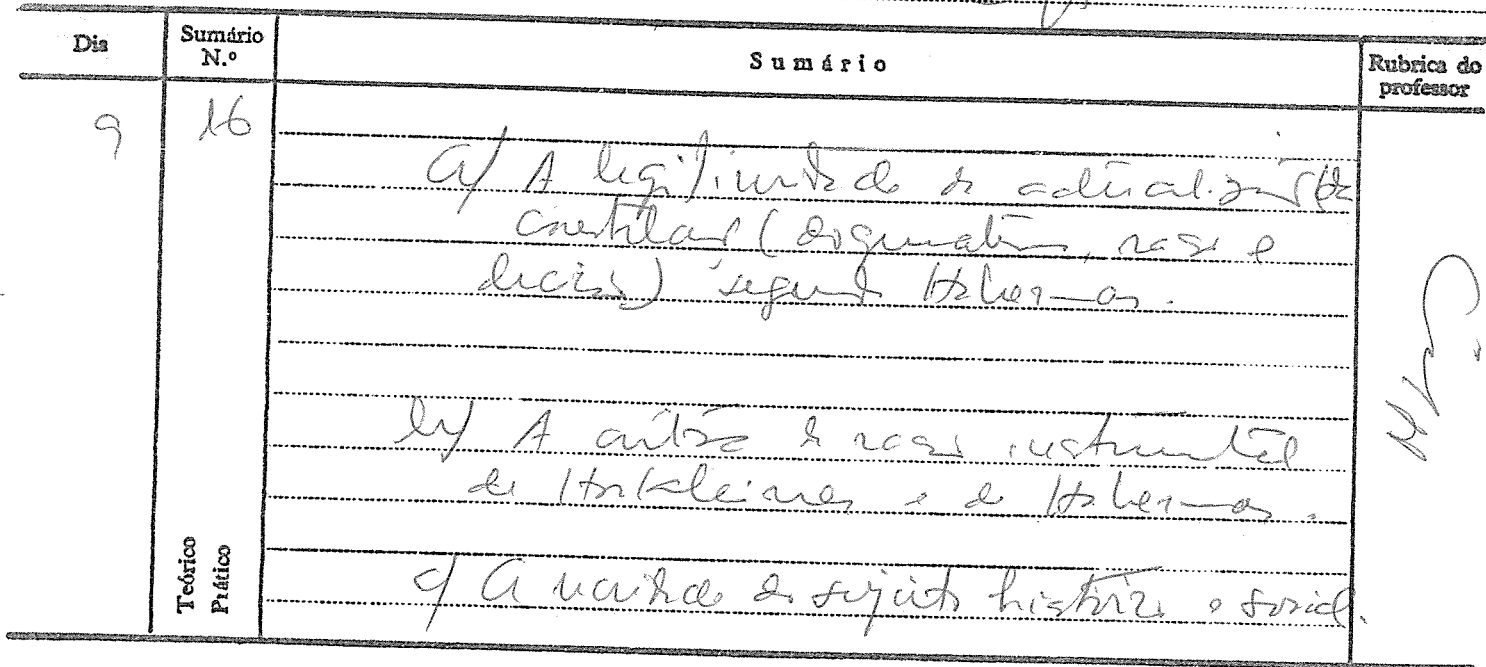 Dia Sumário N.º Sumário Rubrica do professor
9 16
a) A legitimidade da
(dogmatismo, razão e
decisão) segundo Habermas.
b) A crítica da razão instrumental
de Horkheimer e de Habermas.
c) A do sujeito histórico e social.
Teórico
Prático